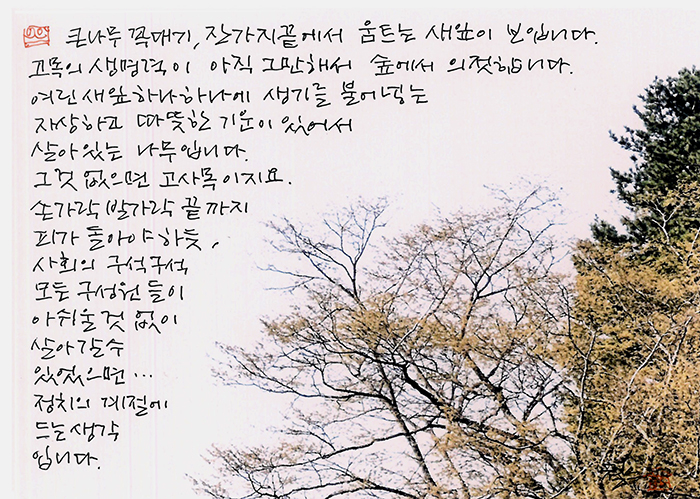 큰나무 꼭대기, 잔가지끝에서 움트는 새잎이 보입니다.
고목의 생명력이 아직 그만해서 숲에서 의젓합니다.
여린새잎하나하나에 생기를 불어넣는
자상하고 따뜻한 기운이 있어서
살아있는 나무입니다.
그것 없으면 고사목이지요.
손가락 발가락 끝까지
피가 돌아야 하듯,
사회의 구석구석
모든 구성원들이
아쉬울 것 없이
살아갈수
있었으면...
정치의 계절에
드는생각
입니다.